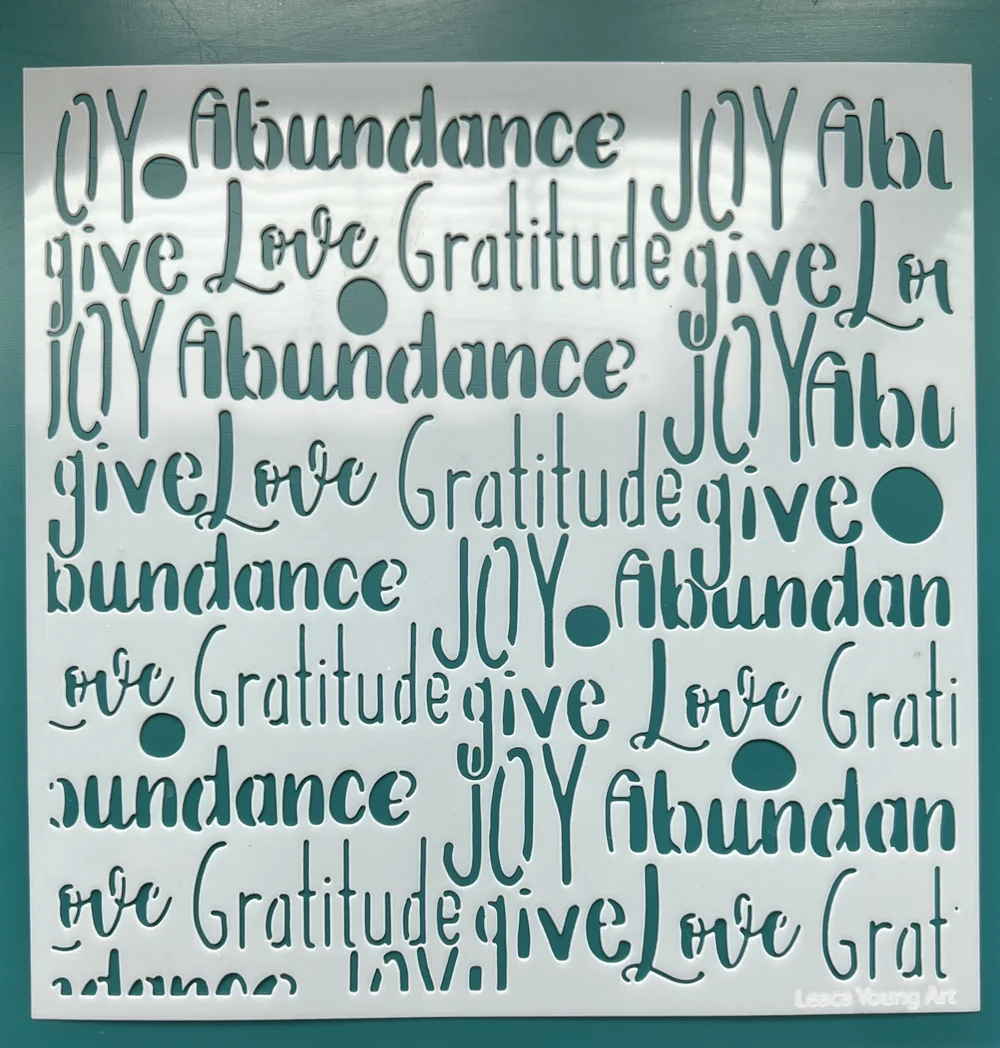 OY Abundance JOY Abu
give Love Gratitude give Lov
JOY Abundance JOY Abu
give Love Gratitude give
bundance JOY Abundan
ove Gratitude give Love Grati
bundance JOY Abundan
ove Gratitude give Love Grat
ndance JOY gi
Leaca Young Art